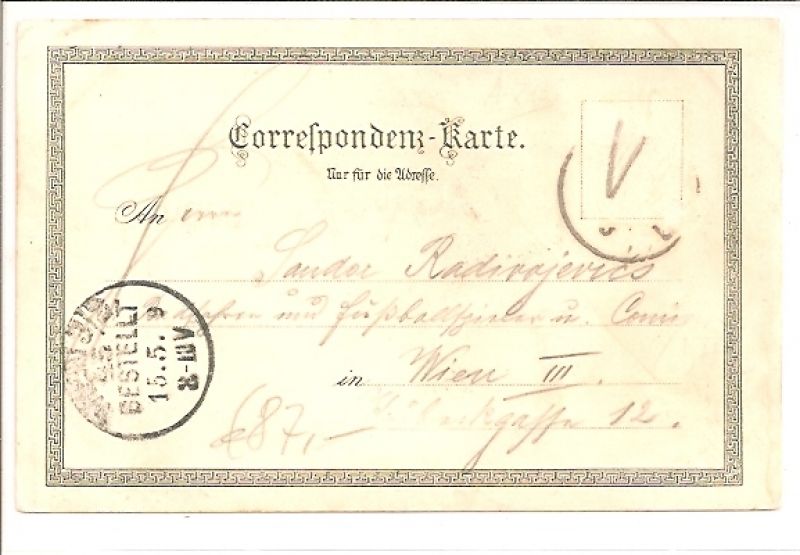 Correſpondenz-Karte.
Nur für die Adreſſe.
An Herrn
Sandor Radivojevics
und Fußballspieler u.
in Wien III.
12.
BESTELLT
15.5.
8-11V
V
€87,-